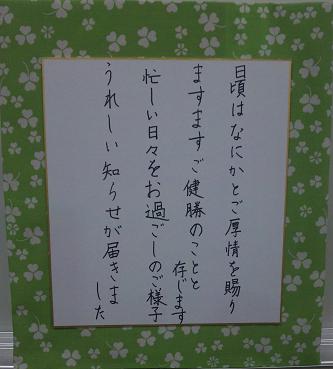 日頃はなにかとご厚情を賜り
ますますご健勝のことと
存じます
忙しい日々をお過ごしのご様子
うれしい知らせが届きま
した